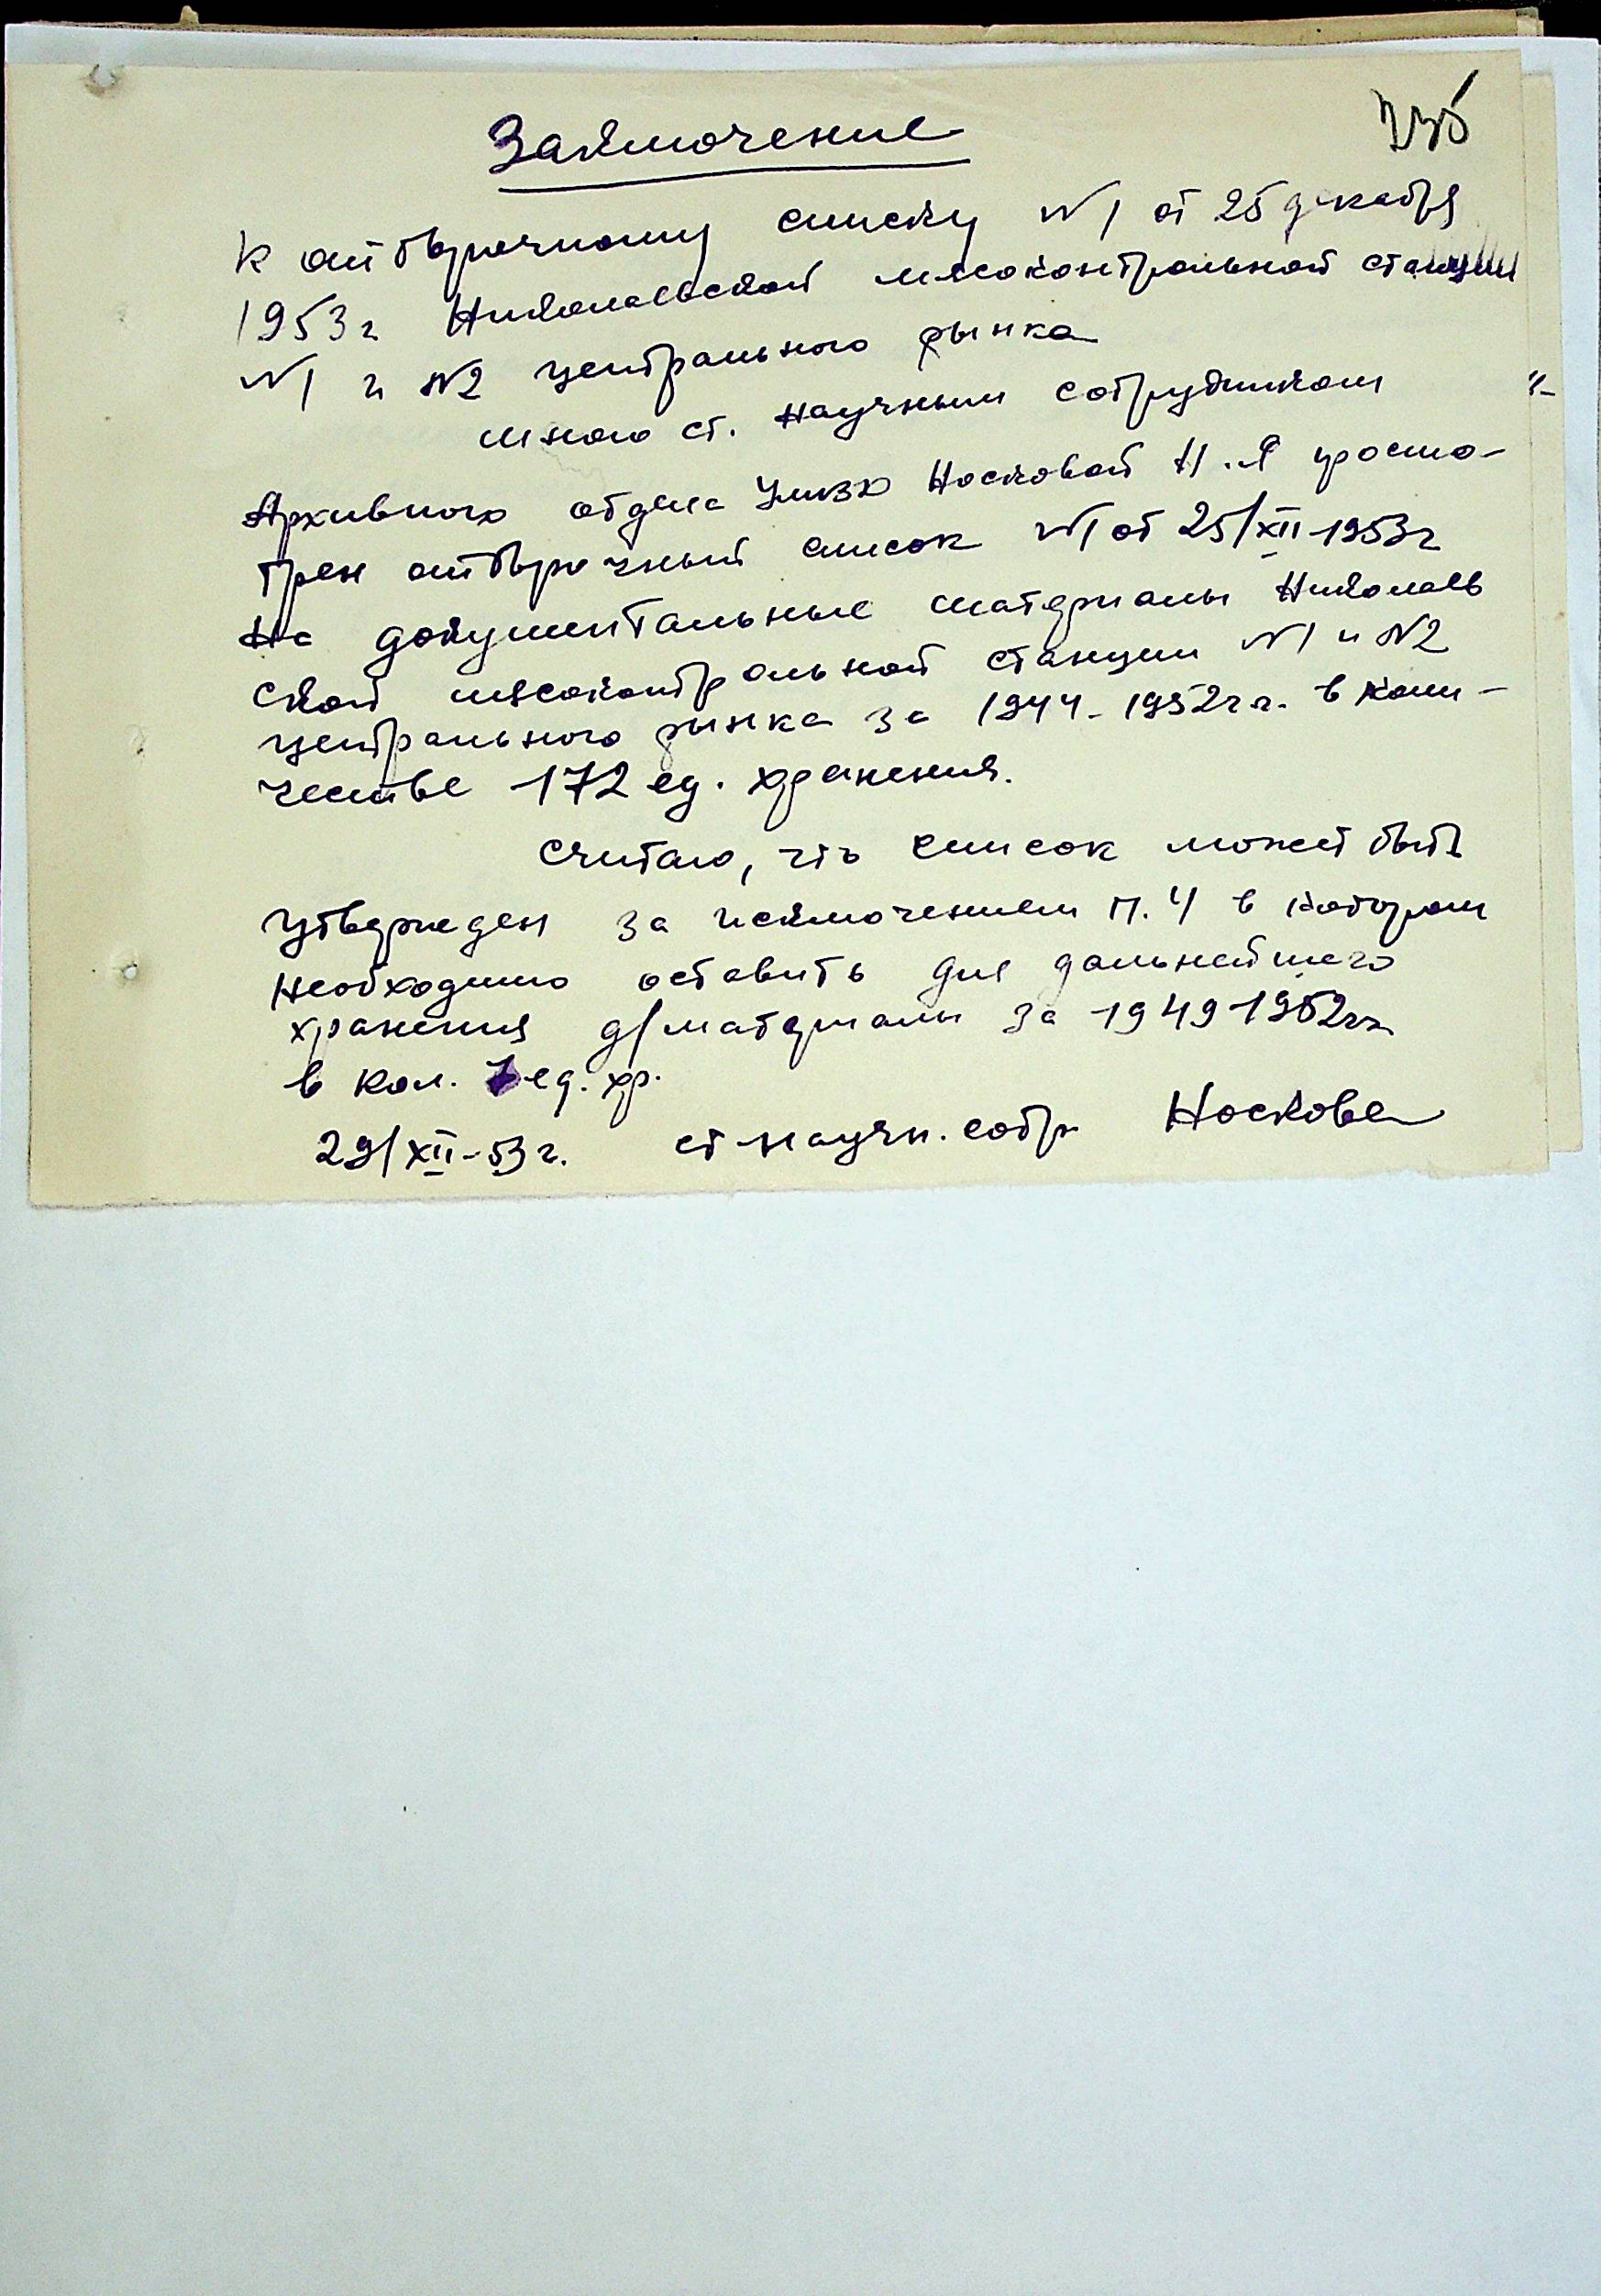 Заключение
к отборочному списку N1 от 25 декабря
1953г Николаевской мясоконтрольной станции
N1 и N2 центрального рынка
мною ст. научным сотрудником
Архивного отдела УМВД Носковой Н.Я просмо-
трен отборочный список N1 от 25/XII-1953г
на документальные материалы Николаев
ской мясоконтрольной станции N1 и N2
центрального рынка за 1944-1952г.г. в коли-
честве 172 ед. хранения.
Считаю, что список может быть
утвержден за исключением п. 4 в котором
необходимо оставить для дальнейшего
хранения д/материалы за 1949-1952гг
в кол. ед. хр.
29/XII-53г. ст научн. сотр Носкова